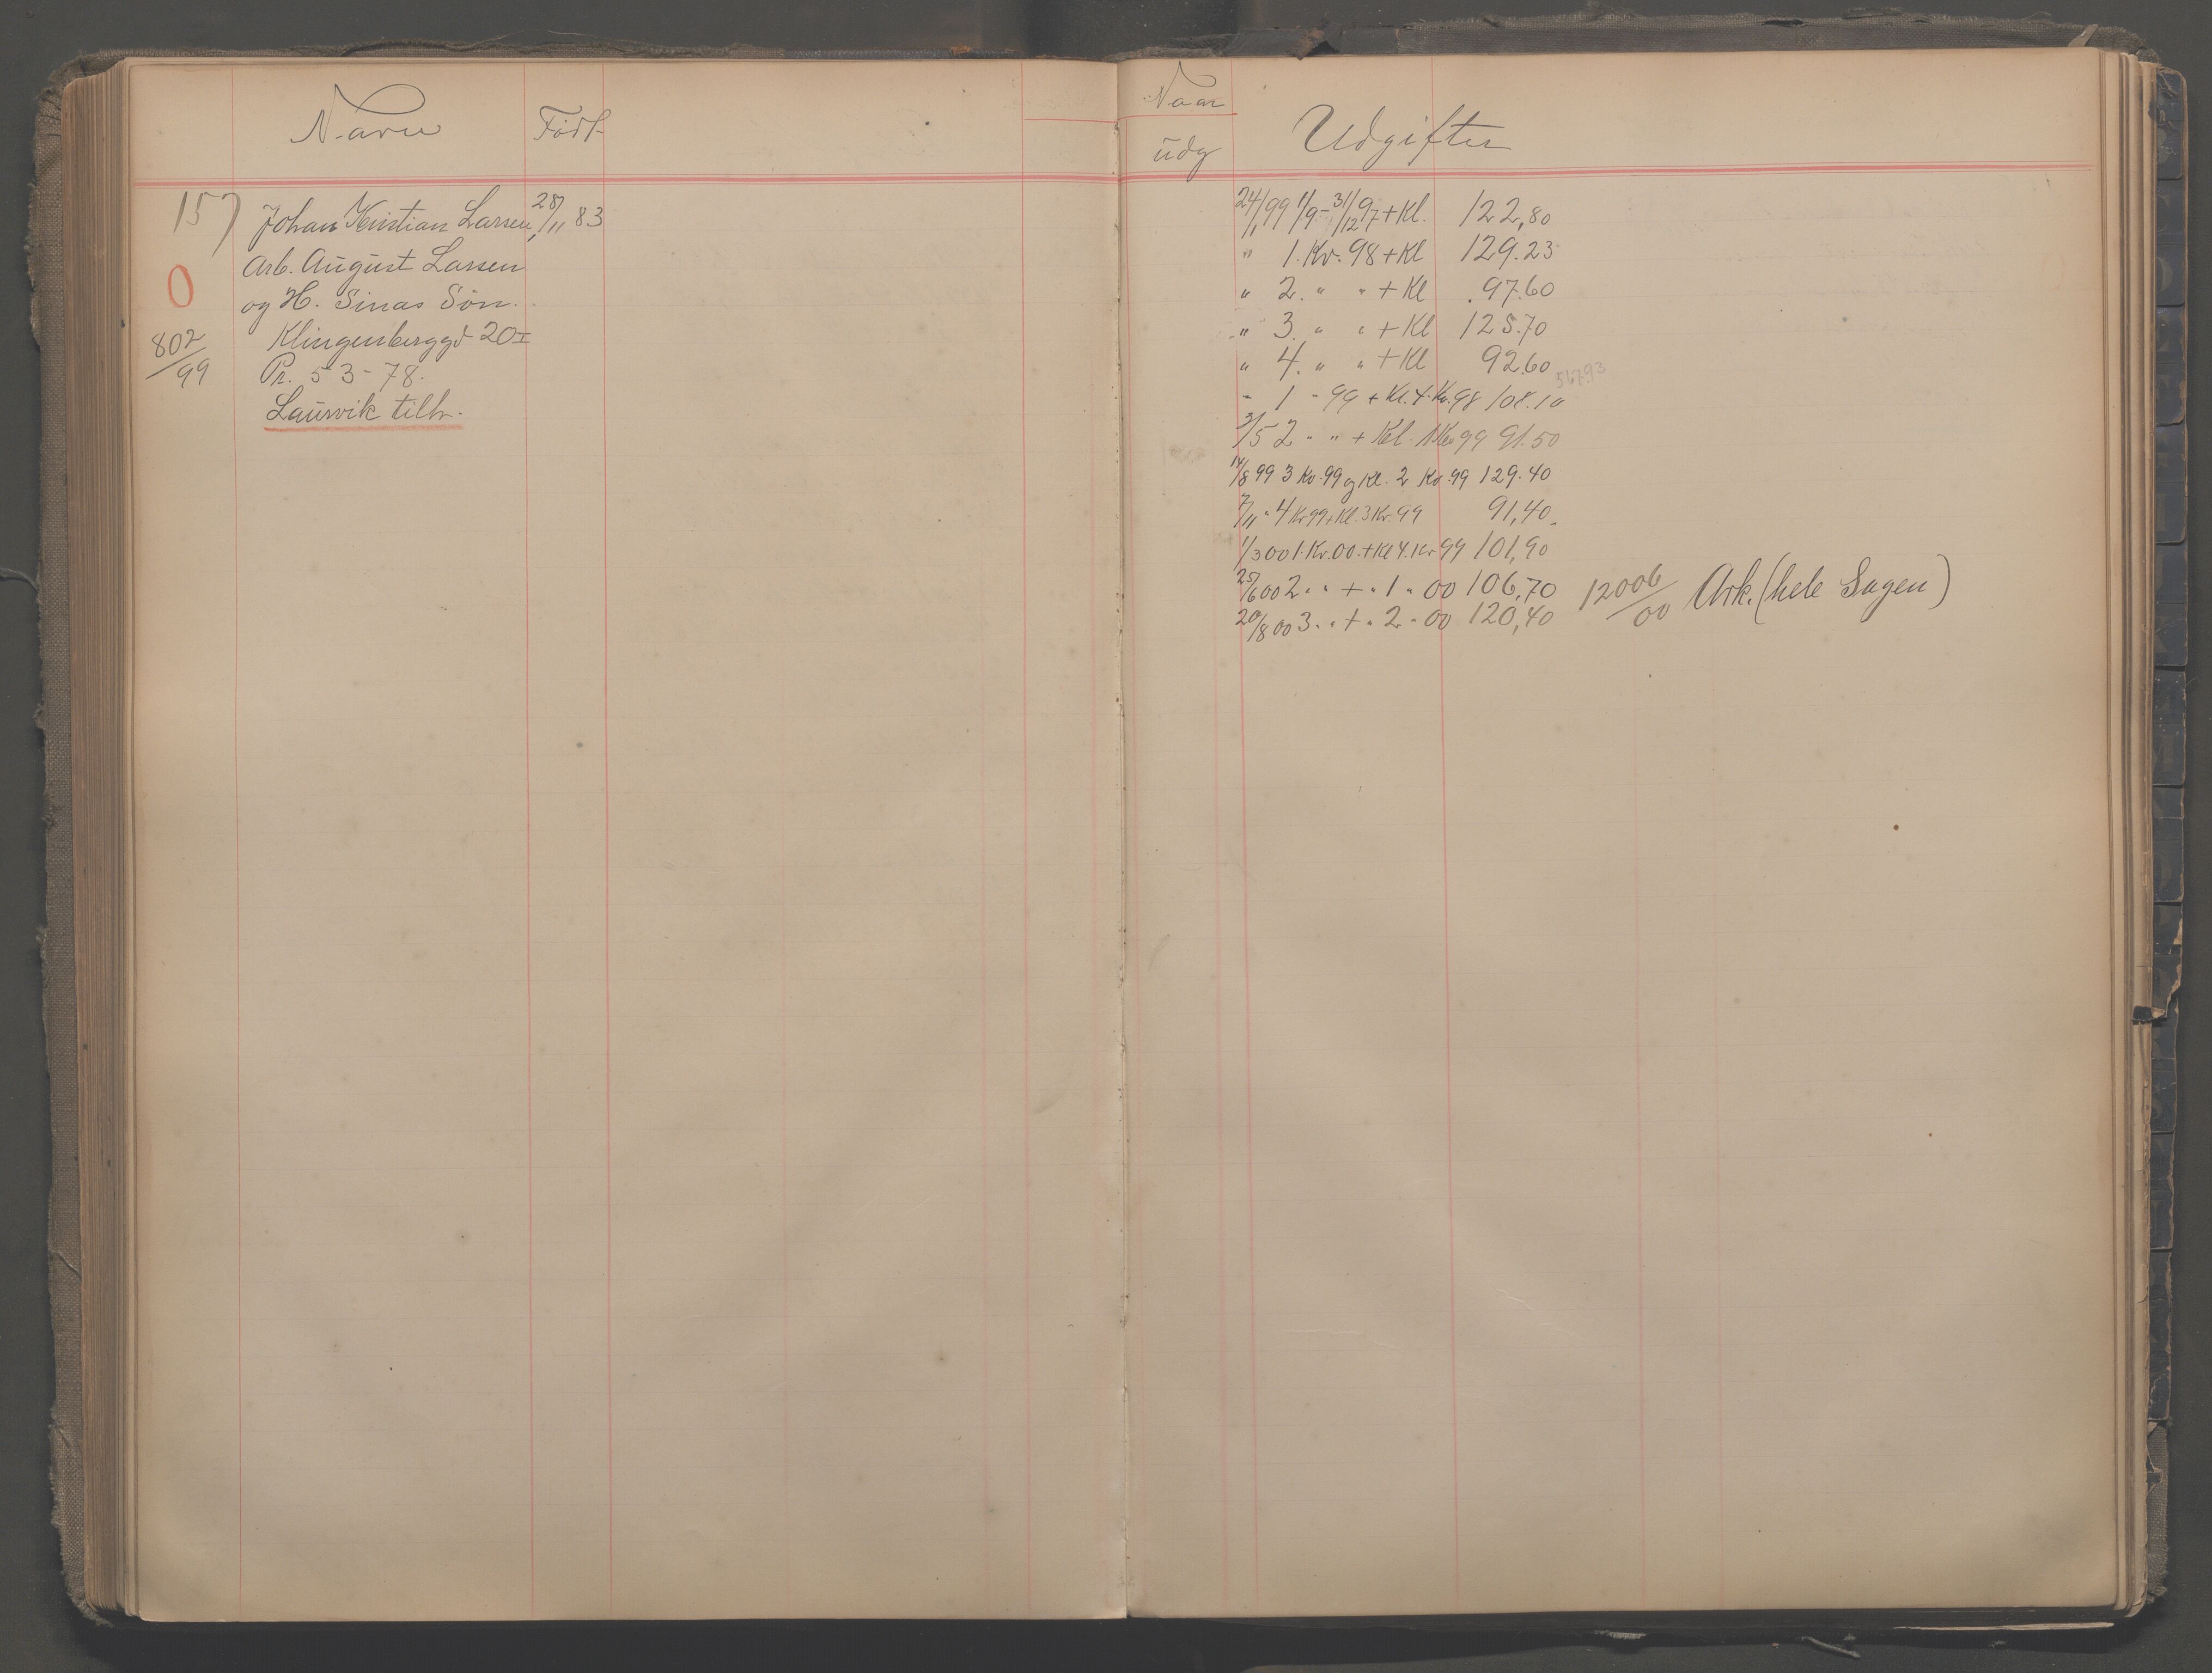 Navn Födt
157 Johan Kristian Larsen, 28/11 83
Arb. August Larsen
0
og H. Sinas Sön.
802/99 Klingenberggd 20 I
Pr. 53-78.
Laurvik tilh.
Naar udg Udgifter
24/1 99 1/9-31/12 97 + Kl. 122,80
" 1. Kv. 98 + Kl 129.23
" 2. " " + Kl 97.60
" 3. " " + Kl 125.70
" 4. " " + Kl 92.60
567.93
" 1 - 99 + Kl. 4. Kv. 98 108.10
3/5 2 " " + Kl. 1 Kv 99 91.50
14/8 99 3 Kv. 99 og Kl. 2 Kv. 99 129.40
7/11 " 4 Kv 99 + Kl. 3 Kv. 99 91,40
1/3 00 1. Kv. 00. + Kl 4. Kv 99 101,90
25/6 00 2. " + " 1 " 00 106,70
20/8 00 3. " + " 2 " 00 120,40
12006/00 Ark. (hele Sagen)